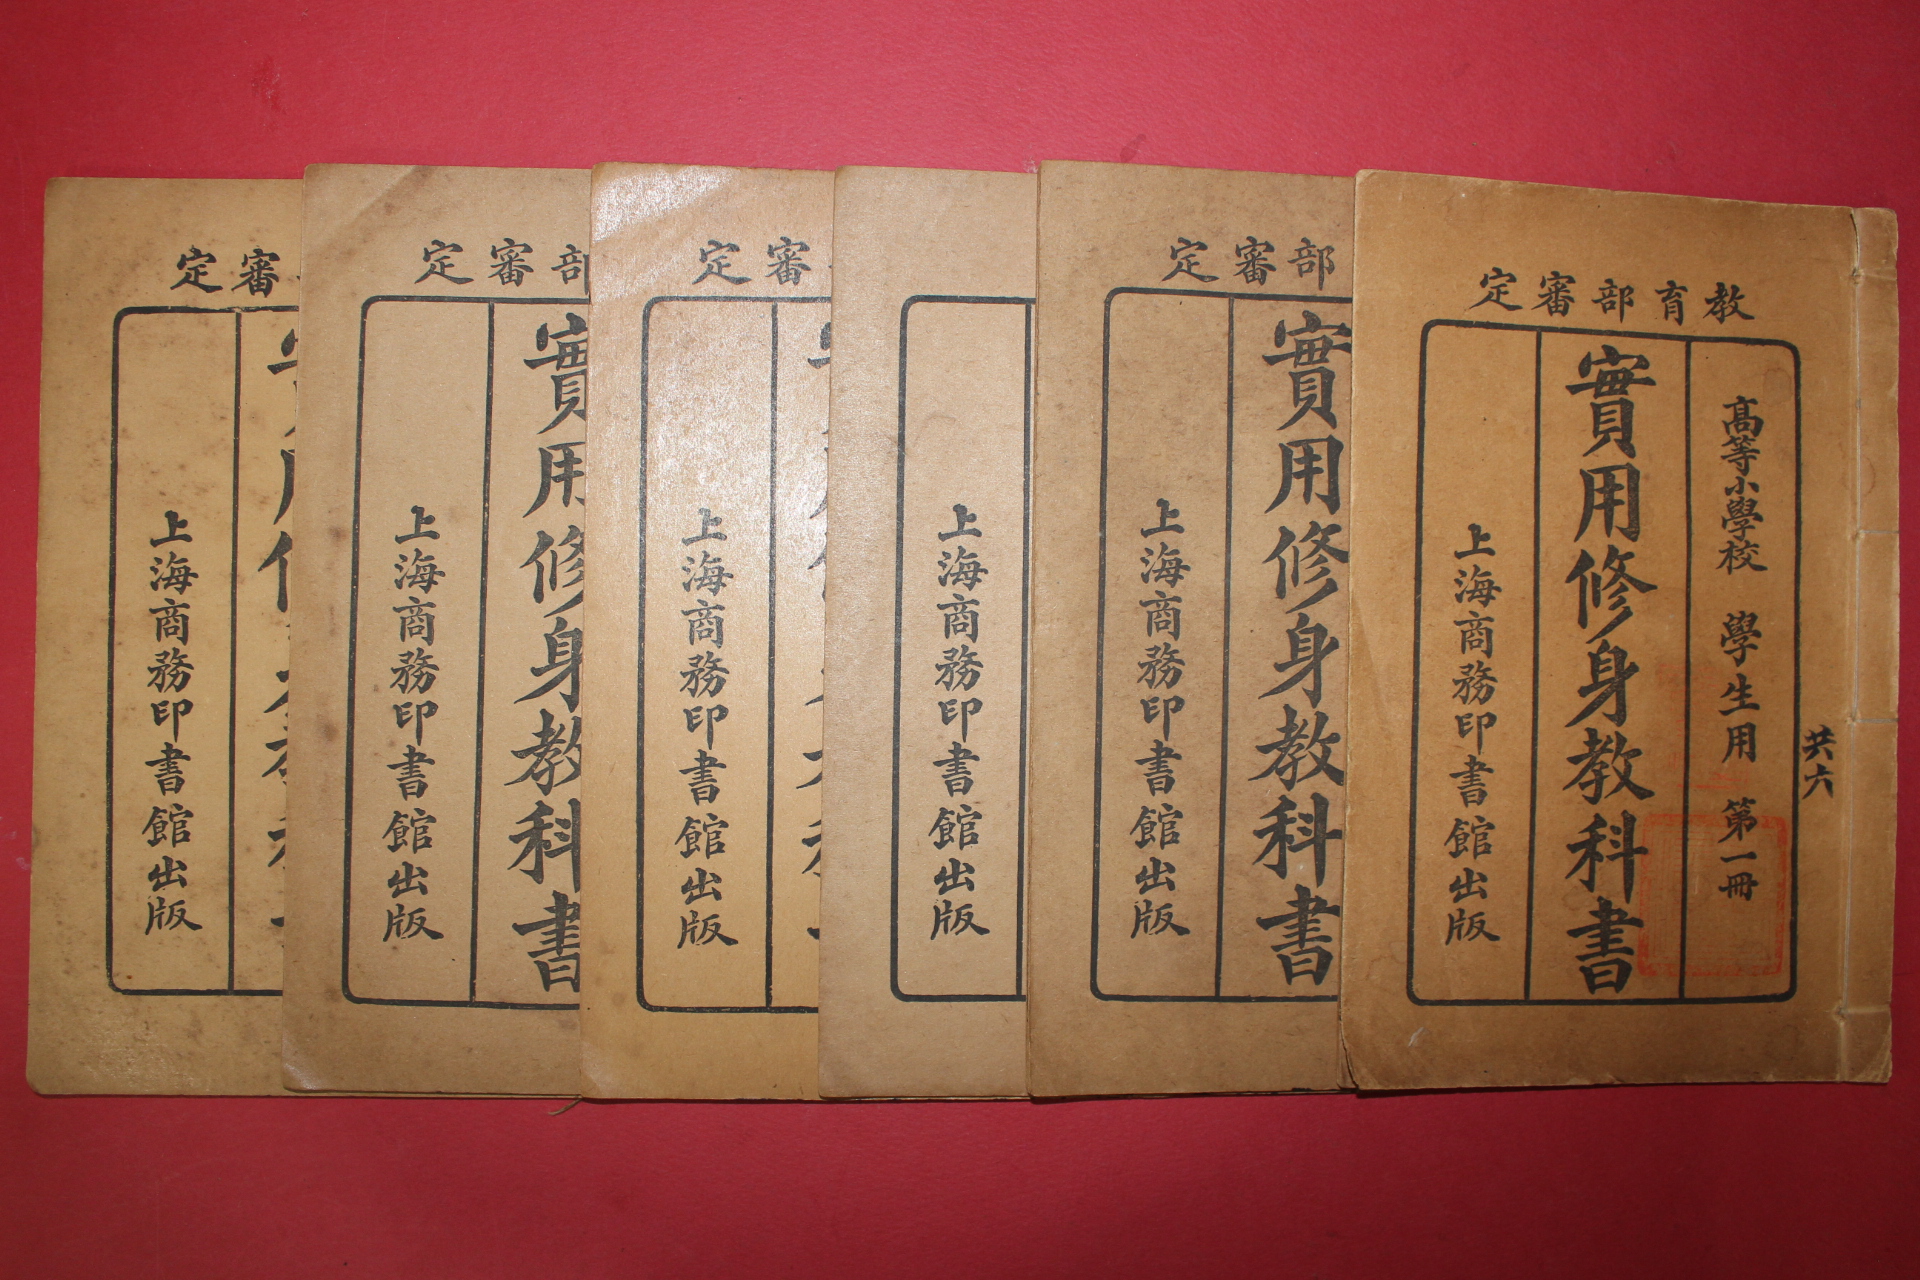 教育部審定
共六
高等小學校 學生用 第一冊
實用修身教科書
上海商務印書館出版
部審定
實用修身教科書
上海商務印書館出版
上海商務印書館出版
審定
上海商務印書館出版
部審定
實用修身教科書
上海商務印書館出版
審定
上海商務印書館出版